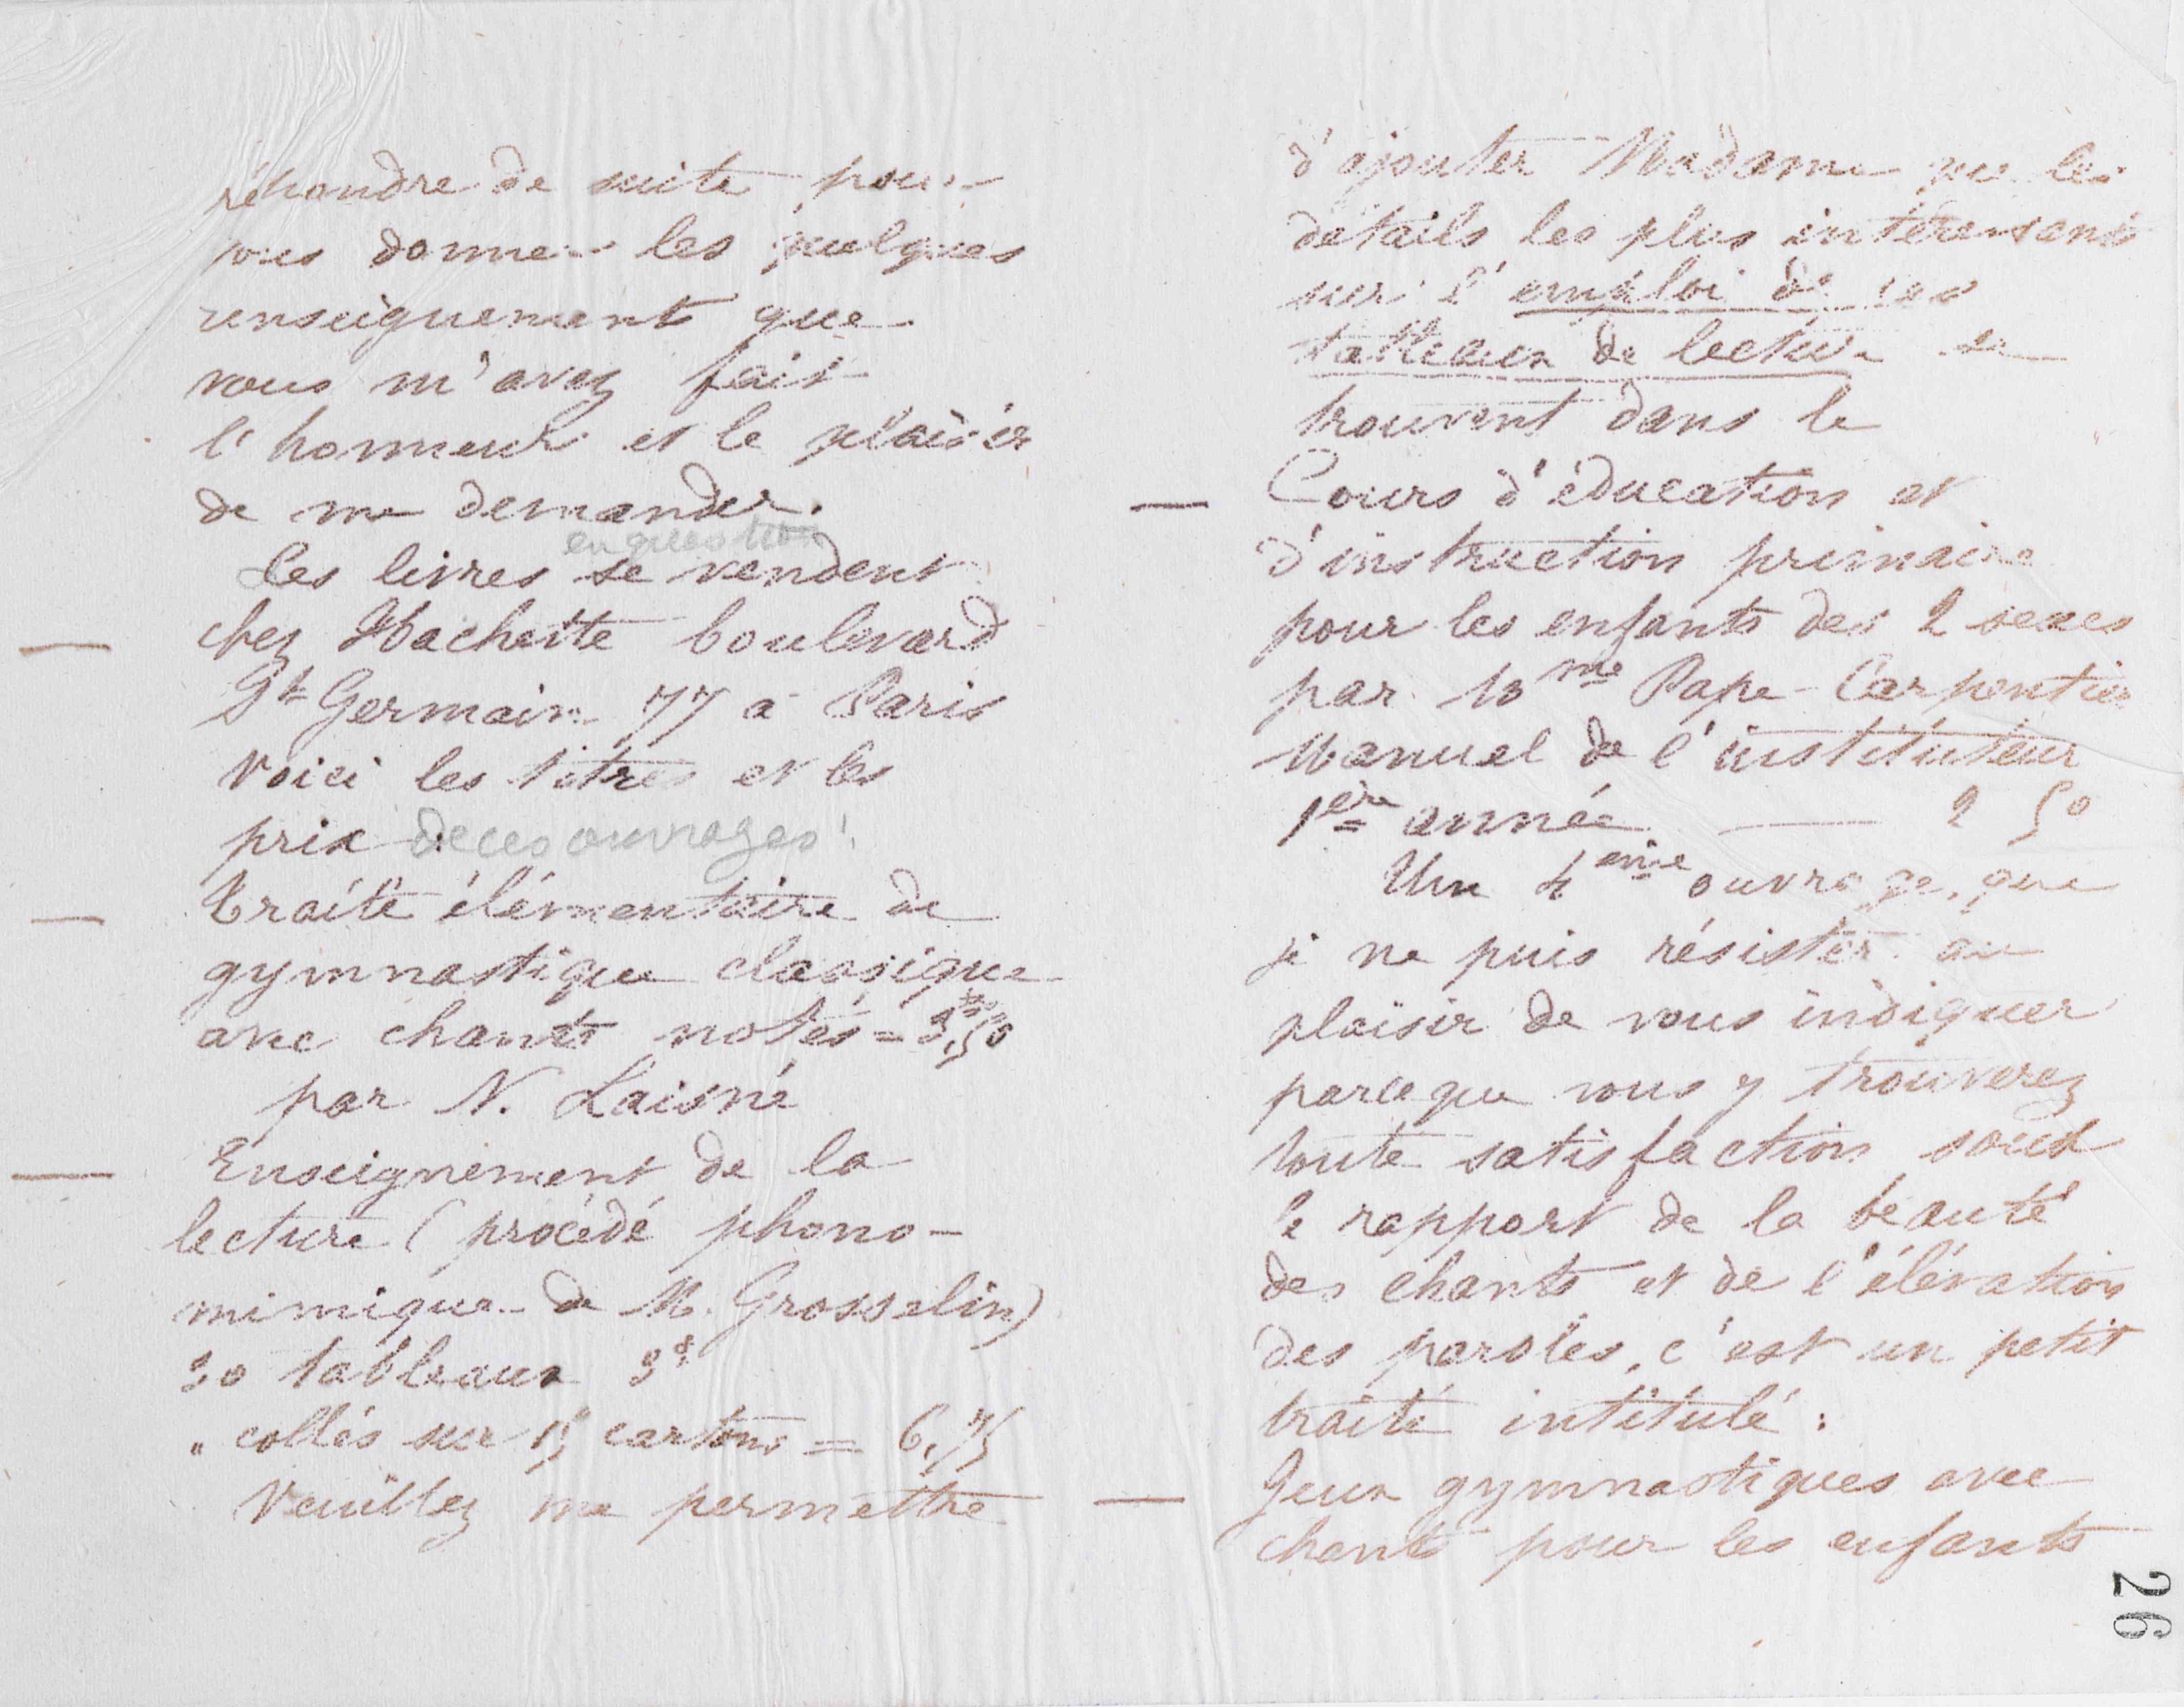 répondre de suite pour
vous donner les quelques
renseignements que
vous m'avez fait
l'honneur et le plaisir
de me demander.
en question
Les livres se vendent
chez Hachette boulevard
St Germain 77 à Paris
Voici les titres et les
prix : de ces ouvrages !
Traité élémentaire de
gymnastique classique
avec chants notés = 3,50
par N. Laisné
Enseignement de la
lecture (procédé phono-
mimique de M. Grosselin)
30 tableaux 3f
" collés sur 15 cartons = 6,75
Veuillez me permettre
d'ajouter Madame que les
détails les plus intéressants
sur l'emploi de ces
tableaux de lecture se
trouvent dans le
Cours d'éducation et
d'instruction primaire
pour les enfants des 2 sexes
par Mme Pape-Carpentier
Manuel de l'instituteur
1ère année — 2 50
Un 4eme ouvrage, que
je ne puis résister au
plaisir de vous indiquer
parceque vous y trouverez
toute satisfaction sous
le rapport de la beauté
des chants et de l'élévation
des paroles, c'est un petit
traité intitulé :
Jeux gymnastiques avec
chants pour les enfants
26